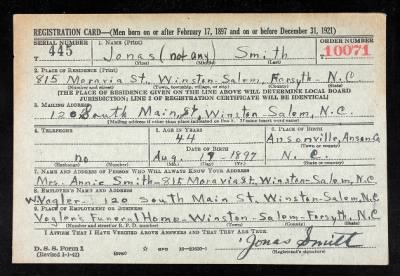 REGISTRATION CARD—(Men born on or after February 17, 1897 and on or before December 31, 1921)
SERIAL NUMBER 1. NAME (Print) ORDER NUMBER
445 Jonas (not any) Smith 10071
(First) (Middle) (Last)
2. PLACE OF RESIDENCE (Print)
815 Moravia St., Winston-Salem, Forsyth - N.C.
(Number and street) (Town, township, village, or city) (County) (State)
[THE PLACE OF RESIDENCE GIVEN ON THE LINE ABOVE WILL DETERMINE LOCAL BOARD
JURISDICTION; LINE 2 OF REGISTRATION CERTIFICATE WILL BE IDENTICAL]
3. MAILING ADDRESS
120 South Main, St., Winston-Salem, N.C.
[Mailing address if other than place indicated on line 2. If same insert word same]
4. TELEPHONE 5. AGE IN YEARS 6. PLACE OF BIRTH
44 Ansonville, Anson Co
DATE OF BIRTH (Town or county)
no Aug. 1897 N. C.
(Exchange) (Number) (Mo.) (Day) (Yr.) (State or country)
7. NAME AND ADDRESS OF PERSON WHO WILL ALWAYS KNOW YOUR ADDRESS
Mrs. Annie Smith - 815 Moravia St., Winston-Salem, N.C.
8. EMPLOYER'S NAME AND ADDRESS
Vogler - 120 South Main St. Winston-Salem, N.C.
9. PLACE OF EMPLOYMENT OR BUSINESS
Vogler's Funeral Home - Winston-Salem - Forsyth, N.C
(Number and street or R. F. D. number) (Town) (County) (State)
I AFFIRM THAT I HAVE VERIFIED ABOVE ANSWERS AND THAT THEY ARE TRUE.
D. S. S. Form 1
(Revised 1-1-42) (over) Jonas Smith
(Registrant's signature)